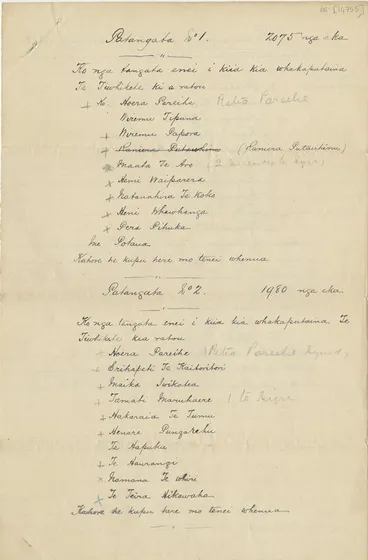 Patangata No 1. 2075 nga eka
Ko nga tangata enei i kiia kia whakaputaina
Te Tiwhikete ki a ratou
+ K. Hoera Pareihe Retia Pareihe
Wiremu Tipuna
+ Wiremu Papora
+ Ramiera (Ramiera Putauhinu)
Maata Te Aro (2
+ Heni Waiparera
+ Matanuhira Te Koko
+ Heni Whawhanga
+ Pera Pihuka
Ine Potaua
Kahore he kupu here mo tenei whenua
Patangata No 2. 1980 nga eka
Ko nga tangata enei i kiia kia whakaputaina Te
Tiwhikete kia ratou
+ Hoera Pareihe Retia Pareihe
+ Erihapeti Te Kaitoritori
Maika Iwikatea
+ Tamati Maruhaere 1 te
+ Hataraia Te Tumu
+ Henare Pungarehu
Te Hapuku
+ Te Haurangi
Mamana Te
+ Te Teira Hikawaha
Kahore he kupu here mo tenei whenua